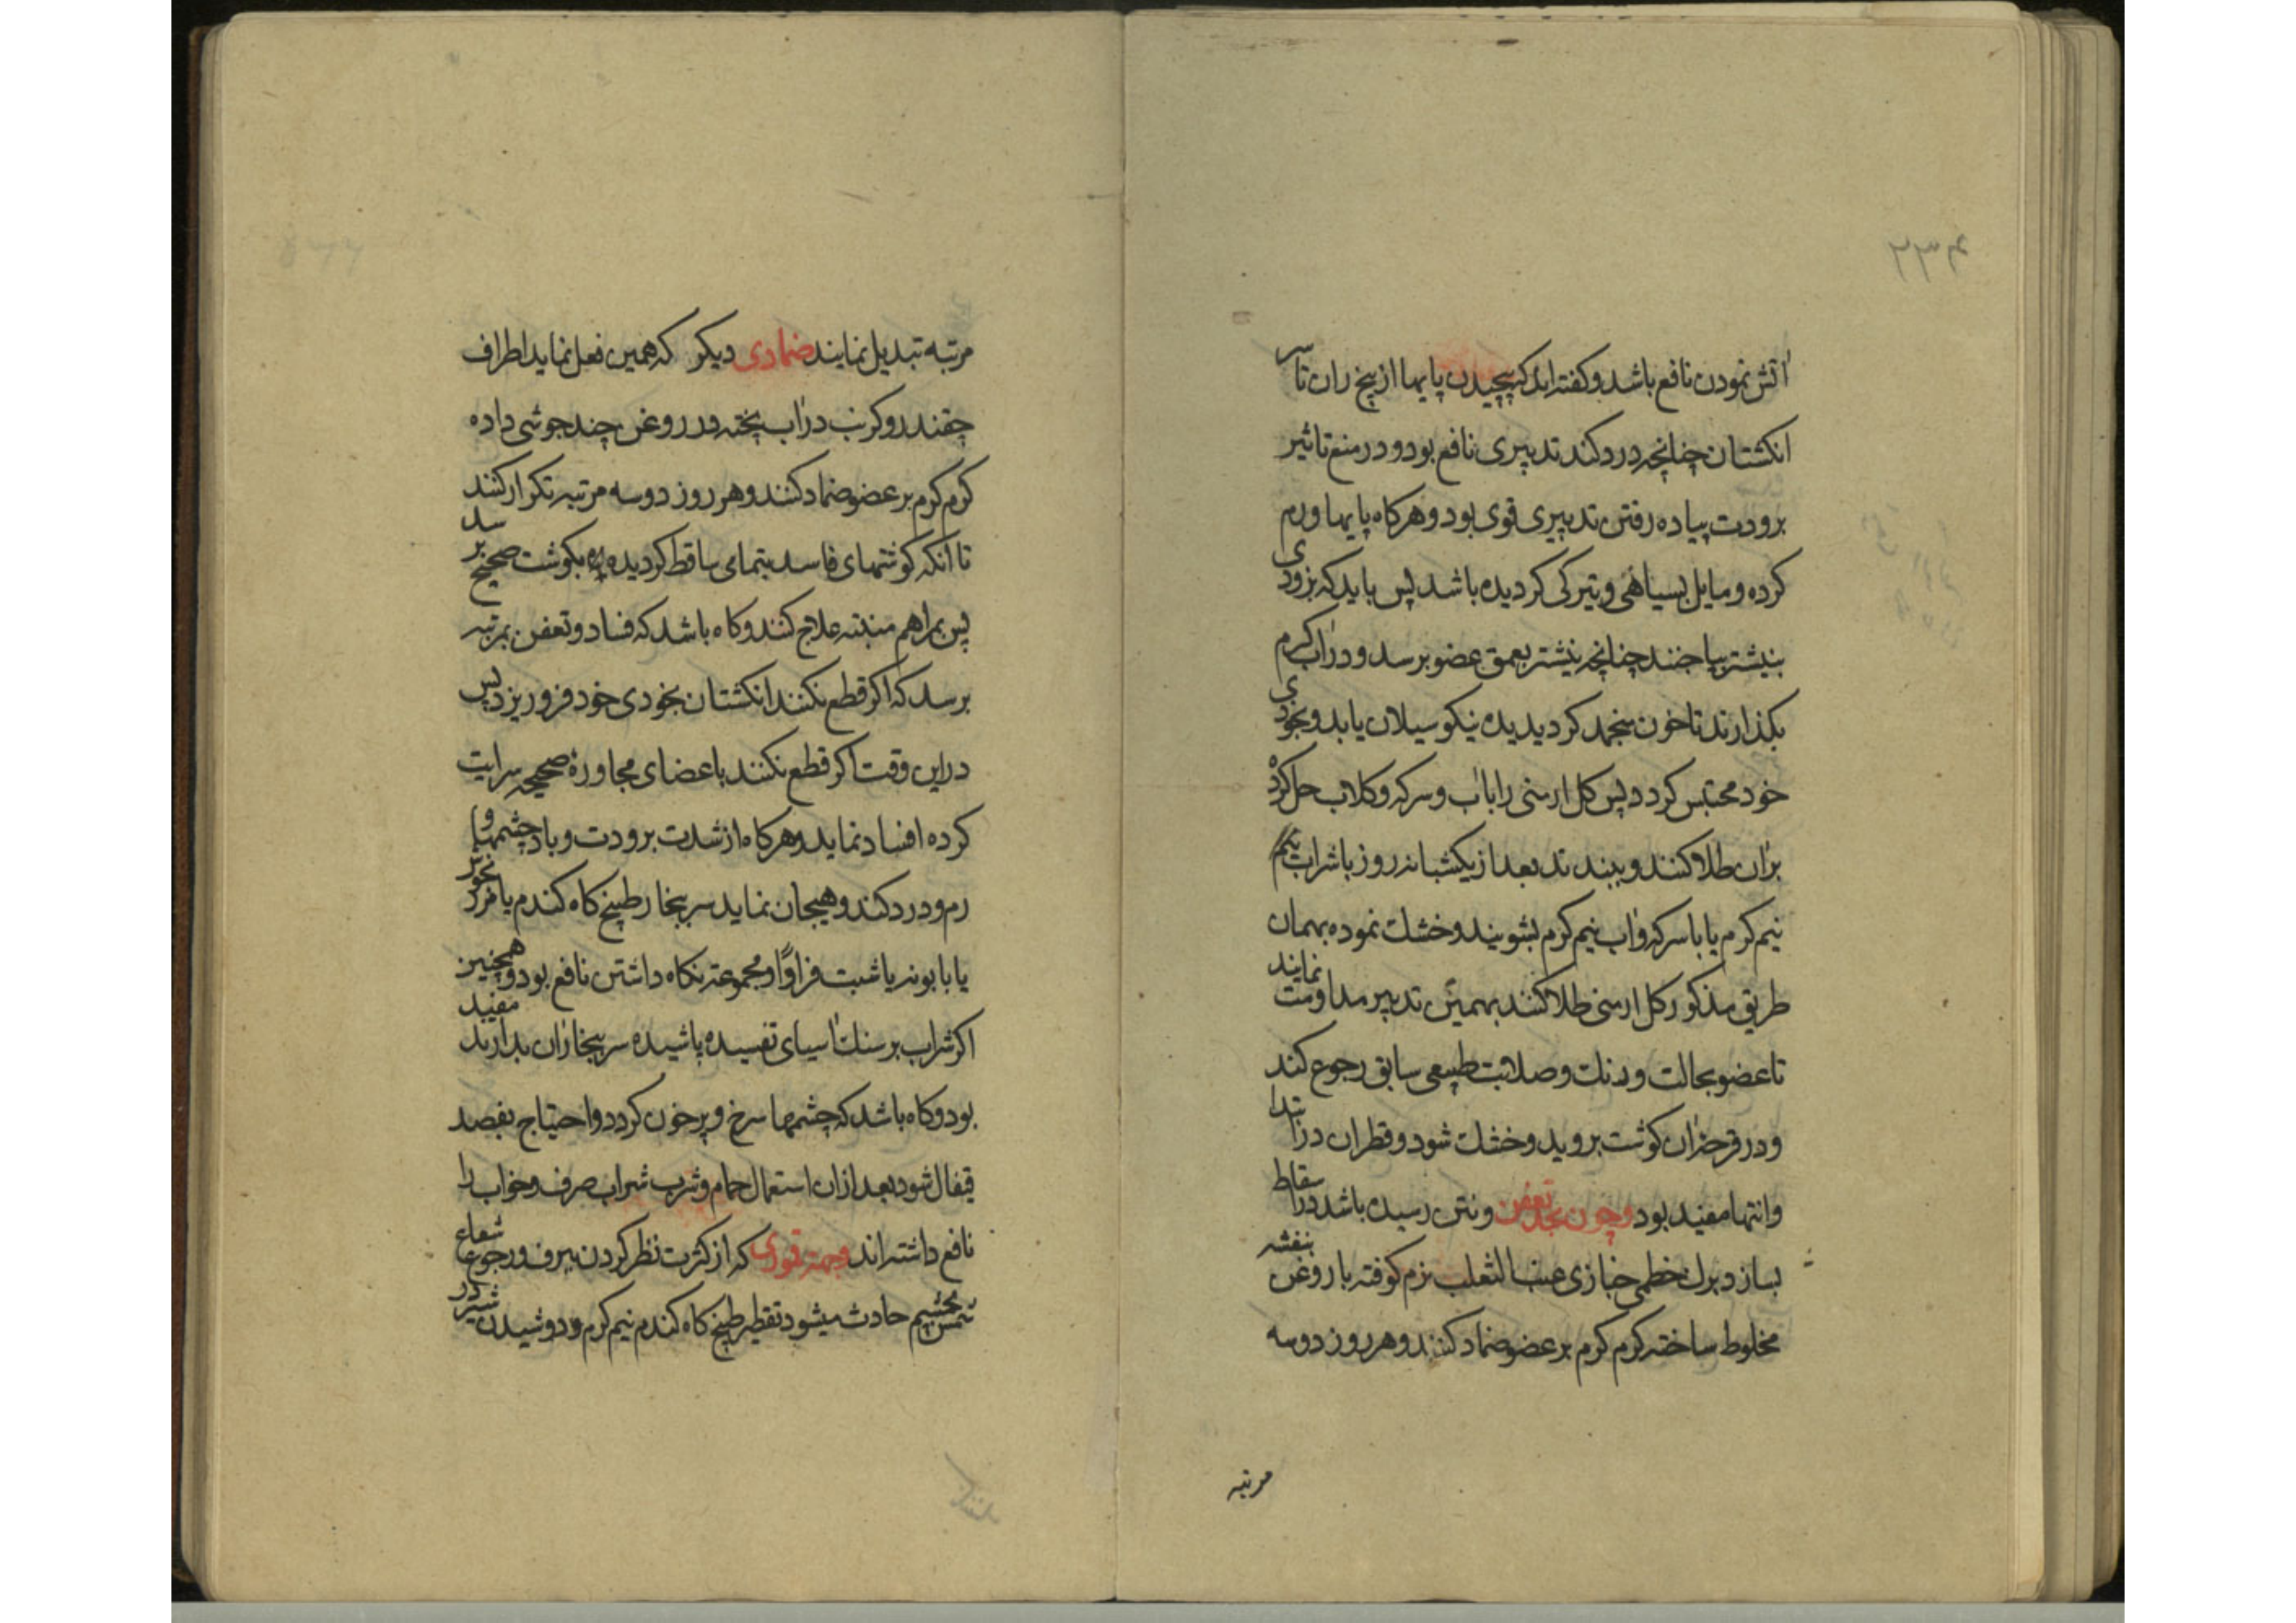 ۲۳۴
اتش نمودن نافع باشد و کفته‌اند که پیچیدن پایها از بیخ ران تا سر
انکشتان چنانچه درد کند تدبیری نافع بود و در منع تاثیر
برودت پیاده رفتن تدبیری قوی بود و هرکاه پایها ورم
کرده و مایل بسیاهی و تیرکی کردیده باشد پس باید که بزودی
بنیشتر بیاجنند چنانچه نیشتر بعمق عضو برسد و در اب کرم
بکذارند تا خون منجمد کردیدیده نیکو سیلان یابد و بخودی
خود محتبس کردد پس کل ارمنی را باب و سرکه و کلاب حل کرده
بران طلا کنند و ببندند بعد از یکشبانه روز باشراب
نیم کرم یا باسرکه و اب نیم کرم بشویند و خشک نموده بهمان
طریق مذکور کل ارمنی طلا کنند بهمین تدبیر مداومت نمایند
تا عضو بحالت و رنک و صلابت طبیعی سابق رجوع کند
و در قرحزان کوشت بروید و خشک شود و قطران در ابتدا
وانتها مفید بود و چون بحد تعفن و نتن رسیده باشد در اسقاط
بساز دبرک خطمی خبازی عنب الثعلب نرم کوفته با روغن بنفشه
مخلوط ساخته کرم کرم بر عضو ضماد کنند و هر روز دو سه
مرتبه
مرتبه تبدیل نمایند ضمادی دیکر که همین فعل نماید اطراف
چقندر و کرنب در اب پخته و در روغن چند جوشی داده
کرم کرم بر عضو ضماد کنند و هر روز دو سه مرتبه تکرار کنند
تا انکه کوشتهای فاسد بتمامی ساقط کردیده بکوشت صحیح برسد
پس بمراهم منبته علاج کنند و کاه باشد که فساد و تعفن بمرتبه
برسد که اکر قطع نکنند انکشتان بخودی خود فرو ریزد پس
در این وقت اکر قطع نکنند باعضای مجاورهٔ صحیحه سرایت
کرده افساد نماید و هرکاه از شدت برودت و باد چشمها و
رم و درد کند و هیجان نماید سر ببخار طبیخ کاه کندم یا
یا بابونه یا شبت فرادًا و مجموعته نکاه داشتن نافع بود و همچنین
اکر شراب بر سنک اسیای تفسیده پاشیده سر ببخار ان بدارند مفید
بود و کاه باشد که چشمها سرخ و پرخون کردد و احتیاج بفصد
قیفال شود بعد ازان استعمال حمام و شرب شراب صرف و خواب را
نافع داشته‌اند و جهته قموری که از کثرت نظر کردن ببرف و رجوع شعاع
شمس بچشم حادث میشود تقطیر طبیخ کاه کندم نیم کرم و دوشیدن شیر در